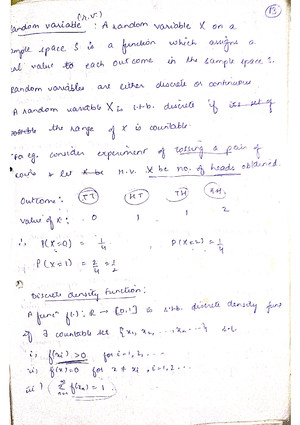 (r.v.)
andom variable : A random variable X on a
ample space S is a function which assigns a
value to each outcome in the sample space S.
Random variables are either discrete or continuous
A random variable X is s.t.b. discrete if
the range of X is countable.
For eg. consider experiment of tossing a pair of
coins & let r.v. X be no. of heads obtained.
Outcome : TT HT TH HH
value of X : 0 1 1 2
∴ P(X=0) = 1/4 , P(X=2) = 1/4
P(X=1) = 2/4 = 1/2
Discrete density function :
A func f(.) : R → [0,1] is s.t.b. discrete density func
if ∃ countable set {x₁, x₂, ..., xₙ ...} s.t.
i) f(xi) > 0 for i=1, 2, ...
ii) f(x)=0 for x ≠ xi , i=1,2...
iii) ∑ f(xₙ) = 1